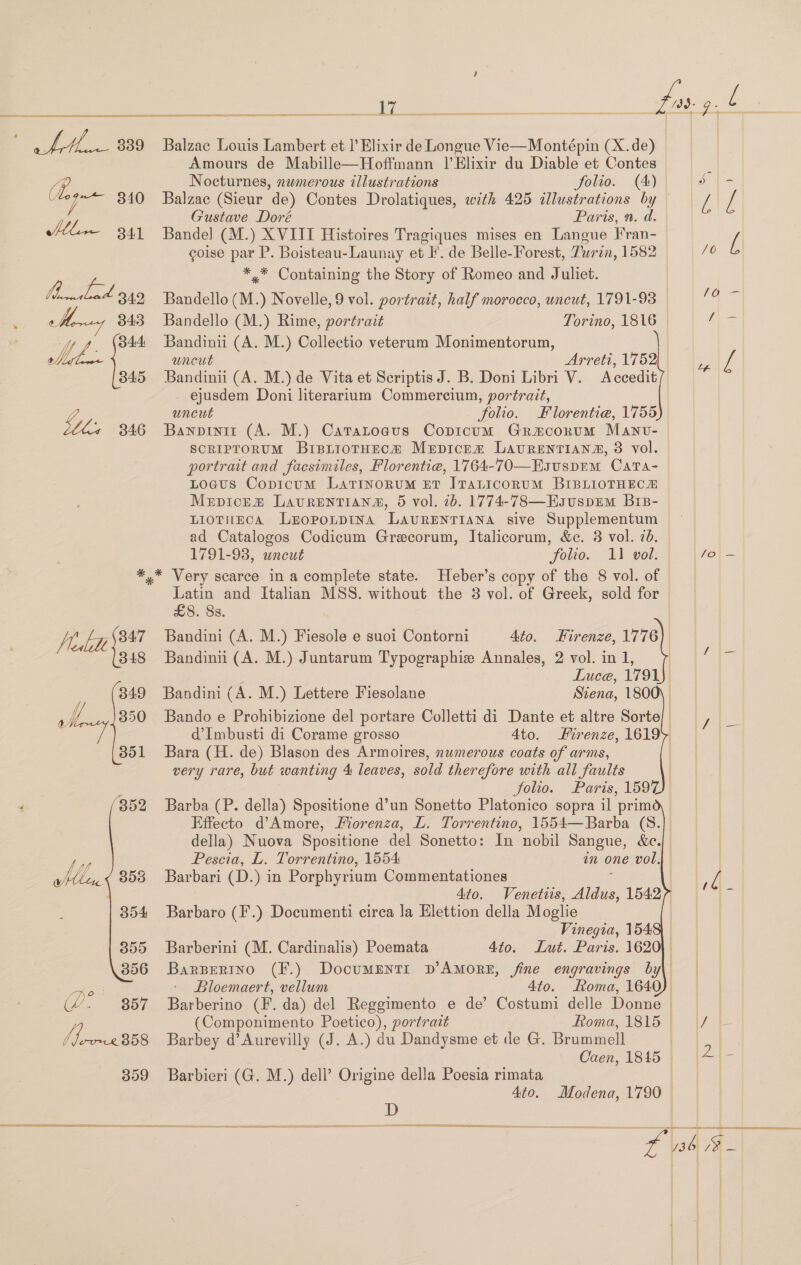 17
339 Balzac Louis Lambert et l'Elixir de Longue Vie—Montépin (X.de)
Amours de Mabille—Hoffmann l'Elixir du Diable et Contes
Nocturnes, numerous illustrations folio. (4) 5 -
340 Balzac (Sieur de) Contes Drolatiques, with 425 illustrations by
Gustave Doré Paris, n. d.
Allen 341 Bandel (M.) XVIII Histoires Tragiques mises en Langue Fran-
çoise par P. Boisteau-Launay et F. de Belle-Forest, Turin, 1582 10 6
*** Containing the Story of Romeo and Juliet.
342 Bandello (M.) Novelle, 9 vol. portrait, half morocco, uncut, 1791-93 10 -
Money 343 Bandello (M.) Rime, portrait Torino, 1816 1 -
344 Bandinii (A. M.) Collectio veterum Monimentorum,
uncut Arreti, 1752
345 Bandinii (A. M.) de Vita et Scriptis J. B. Doni Libri V. Accedit 4 6
ejusdem Doni literarium Commercium, portrait,
uncut folio. Florentiæ, 1755
346 Bandinii (A. M.) Catalogus Codicum Græcorum Manu-
scriptorum Bibliothecæ Mediceæ Laurentianæ, 3 vol.
portrait and facsimiles, Florentiæ, 1764-70—Ejusdem Cata-
logus Codicum Latinorum et Italicorum Bibliothecæ
Mediceæ Laurentianæ, 5 vol. ib. 1774-78—Ejusdem Bib-
liotheca Leopoldina Laurentiana sive Supplementum
ad Catalogos Codicum Græcorum, Italicorum, &c. 3 vol. ib.
1791-93, uncut folio. 11 vol. 10 -
*** Very scarce in a complete state. Heber's copy of the 8 vol. of
Latin and Italian MSS. without the 3 vol. of Greek, sold for
£8. 8s.
347 Bandini (A. M.) Fiesole e suoi Contorni 4to. Firenze, 1776
348 Bandinii (A. M.) Juntarum Typographiæ Annales, 2 vol. in 1, 1 -
Lucæ, 1791
349 Bandini (A. M.) Lettere Fiesolane Siena, 1800
Money 350 Bando e Prohibizione del portare Colletti di Dante et altre Sorte
d'Imbusti di Corame grosso 4to. Firenze, 1619 1 -
351 Bara (H. de) Blason des Armoires, numerous coats of arms,
very rare, but wanting 4 leaves, sold therefore with all faults
folio. Paris, 1597
352 Barba (P. della) Spositione d'un Sonetto Platonico sopra il primo
Effecto d'Amore, Fiorenza, L. Torrentino, 1554—Barba (S.
della) Nuova Spositione del Sonetto: In nobil Sangue, &c.
Pescia, L. Torrentino, 1554 in one vol.
Allen 353 Barbari (D.) in Porphyrium Commentationes
4to. Venetiis, Aldus, 1542
354 Barbaro (F.) Documenti circa la Elettion della Moglie
Vinegia, 1548
355 Barberini (M. Cardinalis) Poemata 4to. Lut. Paris. 1620
356 Barberino (F.) Documenti d'Amore, fine engravings by
Bloemaert, vellum 4to. Roma, 1640
Do. 357 Barberino (F. da) del Reggimento e de' Costumi delle Donne
(Componimento Poetico), portrait Roma, 1815 1 -
358 Barbey d'Aurevilly (J. A.) du Dandysme et de G. Brummell
Caen, 1845 2 -
359 Barbieri (G. M.) dell' Origine della Poesia rimata
4to. Modena, 1790
D